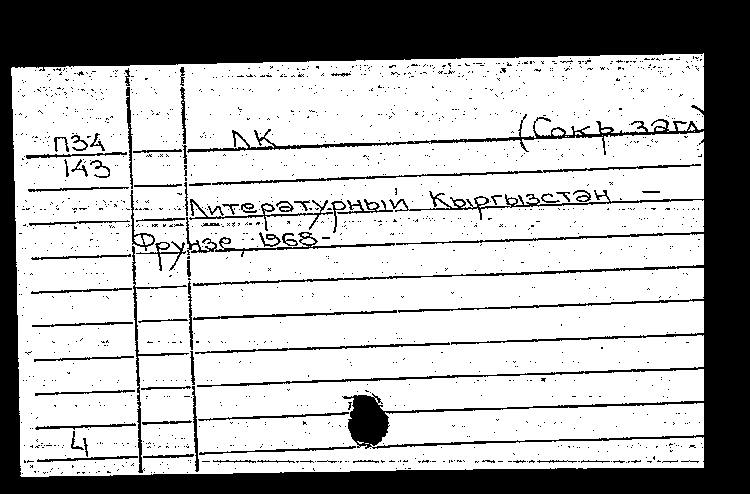 П34 ЛК (Сокр. загл)
143
Литературный Кыргызстан. –
Фрунзе, 1968-
Ч